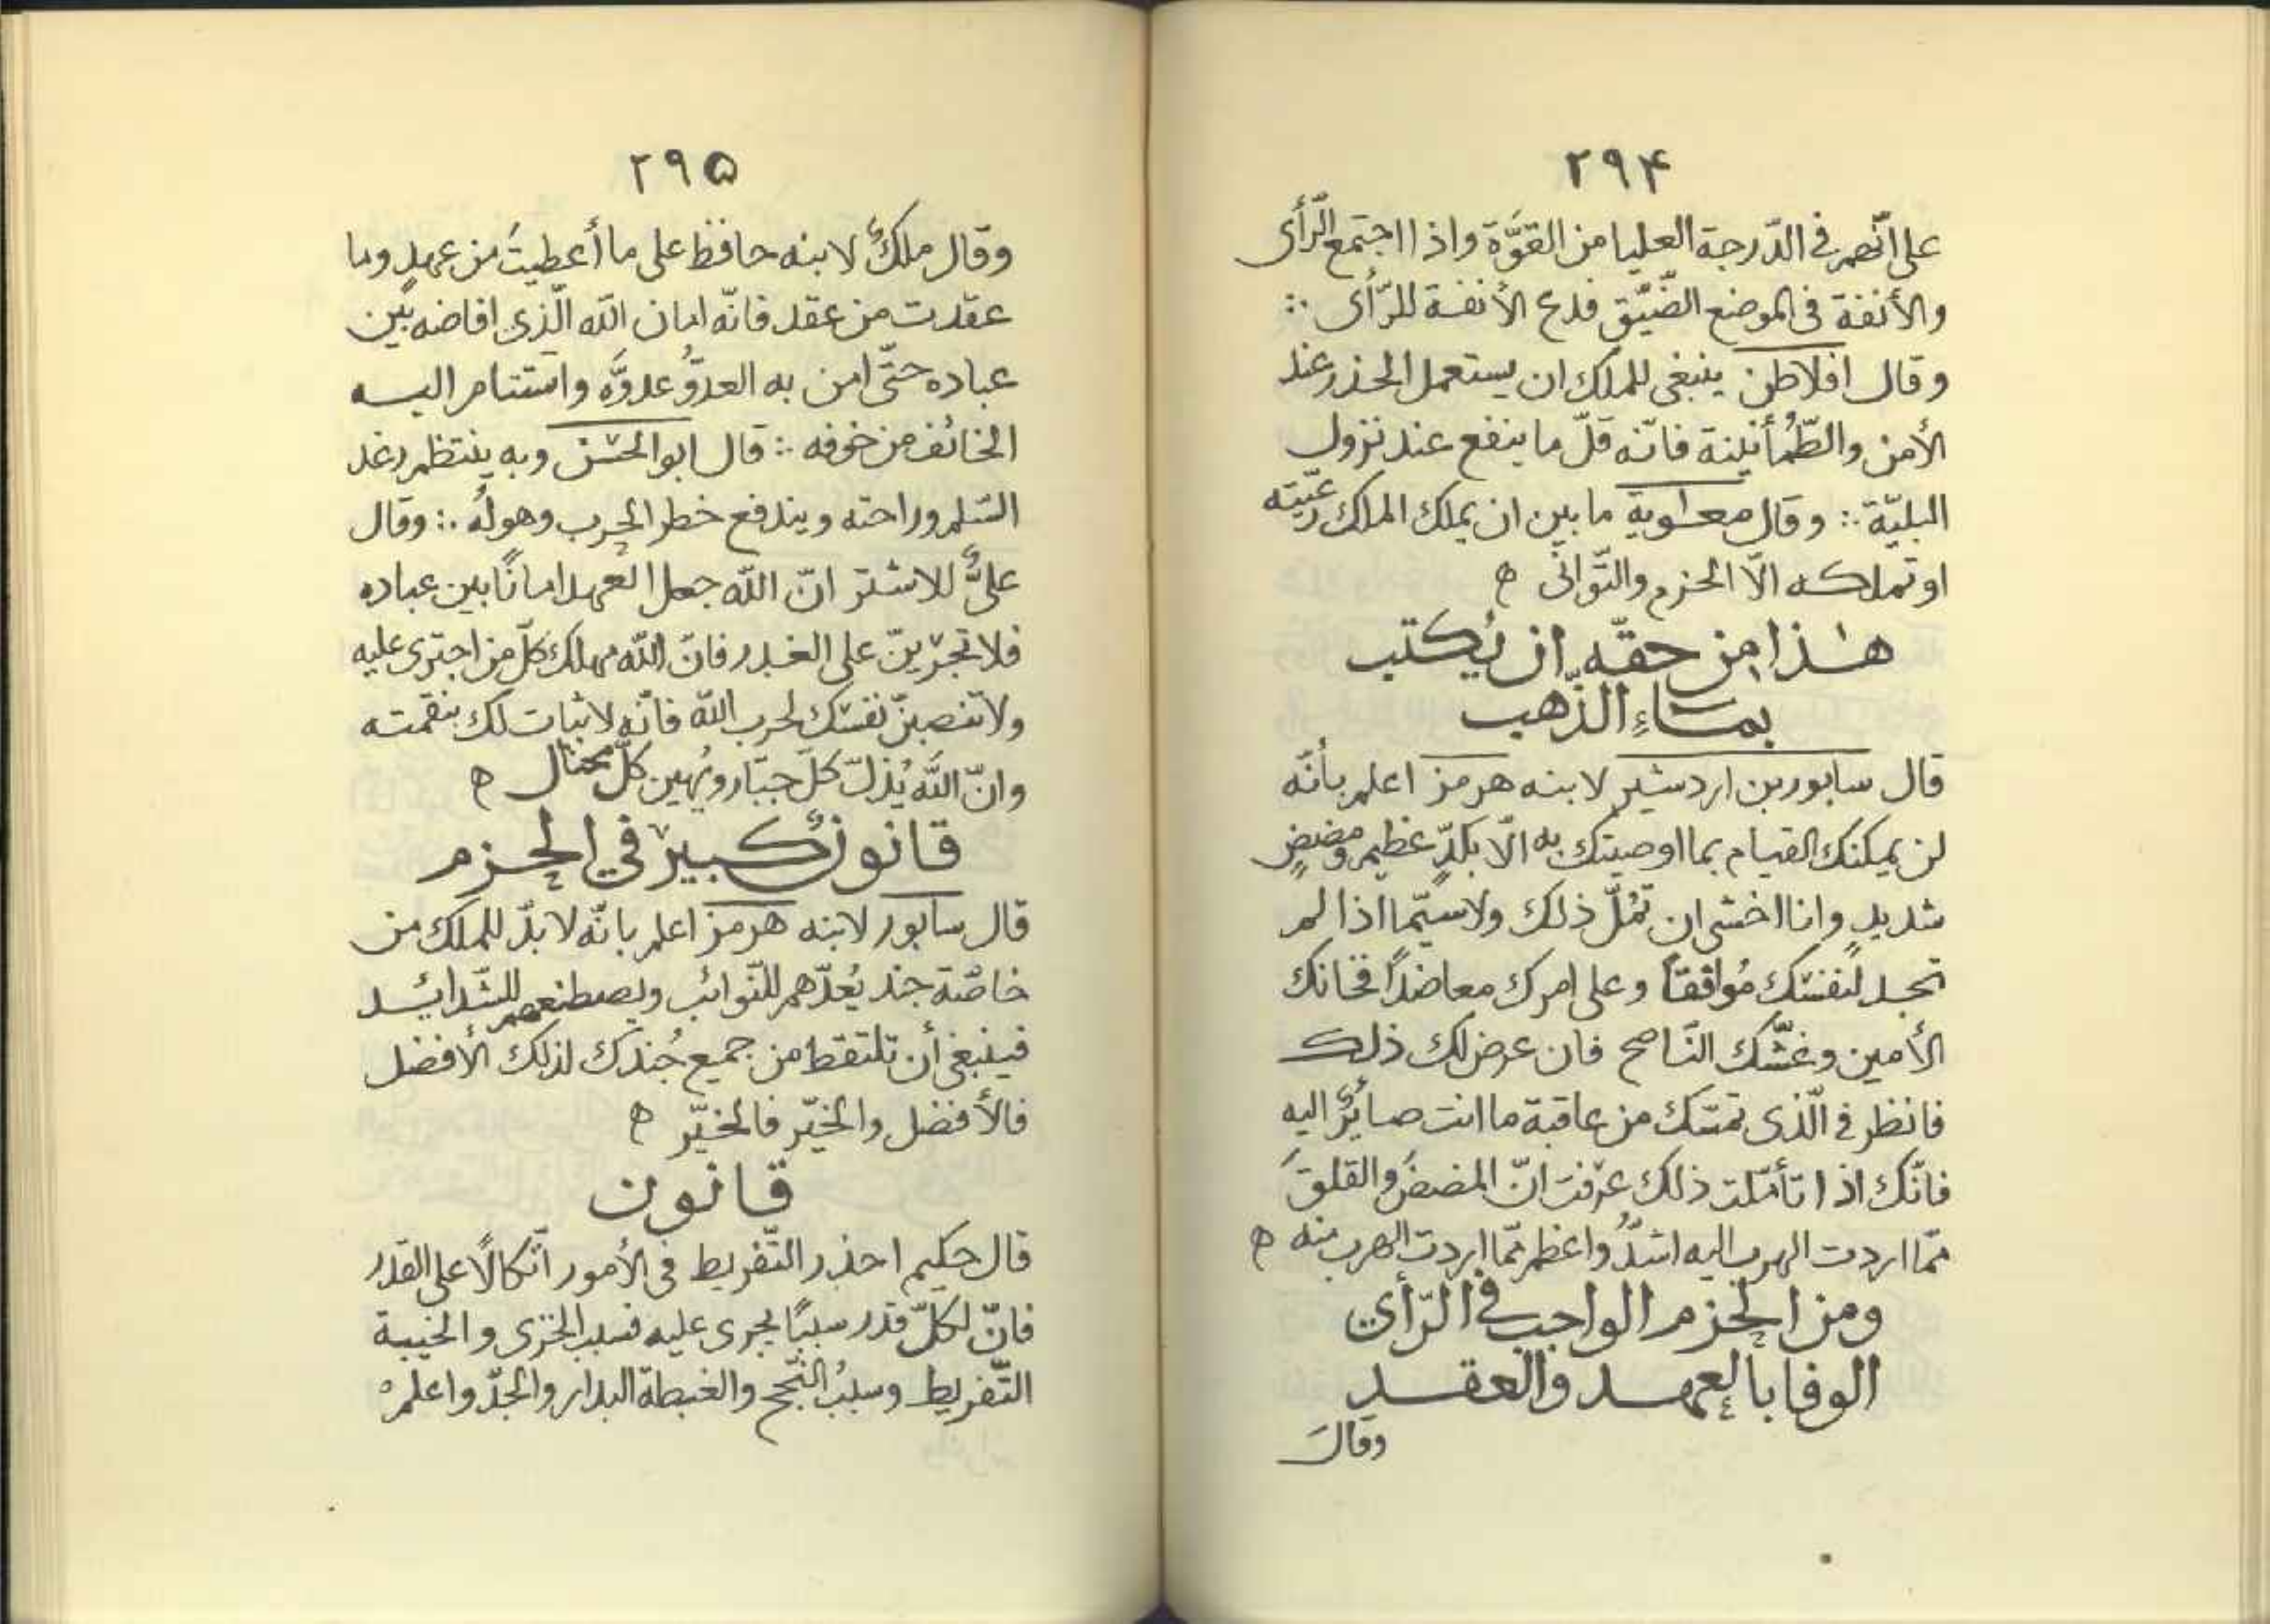 ۲۹۴
على انّهم فى الدّرجة العليا من القوَّة واذا اجتمع الرّأى
والأنفة فى الموضع الضّيّق فدع الأنفة للرّأى ∴
وقال افلاطن ينبغى للملك ان يستعمل الحذر عند
الأمن والطّمُأنينة فانّه قلّ ما ينفع عند نزول
البليّة ∴ وقال معاوية ما بين ان يملك الملك رعيّته
او تملكه الّا الحزم والتّوانى ه
هذا من حقّه ان يُكتب
بماءِ الذّهب
قال سابور بن اردشير لابنه هرمز اعلم بأنّه
لن يمكنك القيام بما اوصيتك به الّا بكدٍّ عظيم ومضضٍ
شديدٍ وانا اخشى ان تملّ ذلك ولا سيّما اذا لم
تجد لنفسك مُوافقًا وعلى امرك معاضدًا فخانك
الأمين وغشّك النّاصح فان عرض لك ذلك
فانظر فى الّذى تمسّك من عاقبة ما انت صائرٌ اليه
فانّك اذا تأمّلت ذلك عرفت انّ المضضَ والقلقَ
ممّا اردت الهرب اليه اشدُّ واعظم ممّا اردت الهرب منه ه
ومن الحزم الواجب فى الرّأي
الوفا بالعهد والعقد
وقالَ
۲۹۵
وقال ملكٌ لابنه حافظ على ما أعطيتَ من عهدٍ وما
عقدت من عقد فانّه امان الله الّذى افاضه بين
عباده حتّى امن به العدوُّ عدوَّه واستنام اليه
الخائف من خوفه ∴ قال ابو الحسن وبه ينتظم رغد
السّلم وراحته ويندفع خطر الحرب وهولُه ∴ وقال
علىٌّ للاشتر انّ الله جعل العهد امانًا بين عباده
فلا تجرينّ على الغدر فانّ الله مهلك كلّ من اجترى عليه
ولا تنصبنّ نفسك لحرب الله فانّه لا ثبات لك بنقمته
وانّ الله يُذلّ كلّ جبّار ويُهين كلّ مختال ه
قانونٌ كبيرٌ في الحزم
قال سابور لابنه هرمز اعلم بانّه لا بدّ للملك من
خاصّة جند يُعدّهم للنّوائب ويصطنعهم للشّدائد
فينبغى أن تلتقط من جميع جُندك لذلك الأفضل
فالأفضل والخيّر فالخيّر ه
قانون
قال حكيم احذر التّفريط فى الأمور اتّكالًا على القدر
فانّ لكلّ قدر سببًا يجرى عليه فسبب الخزى والخيبة
التّفريط وسببُ النّجح والغبطة البدار والجدّ واعلم ه